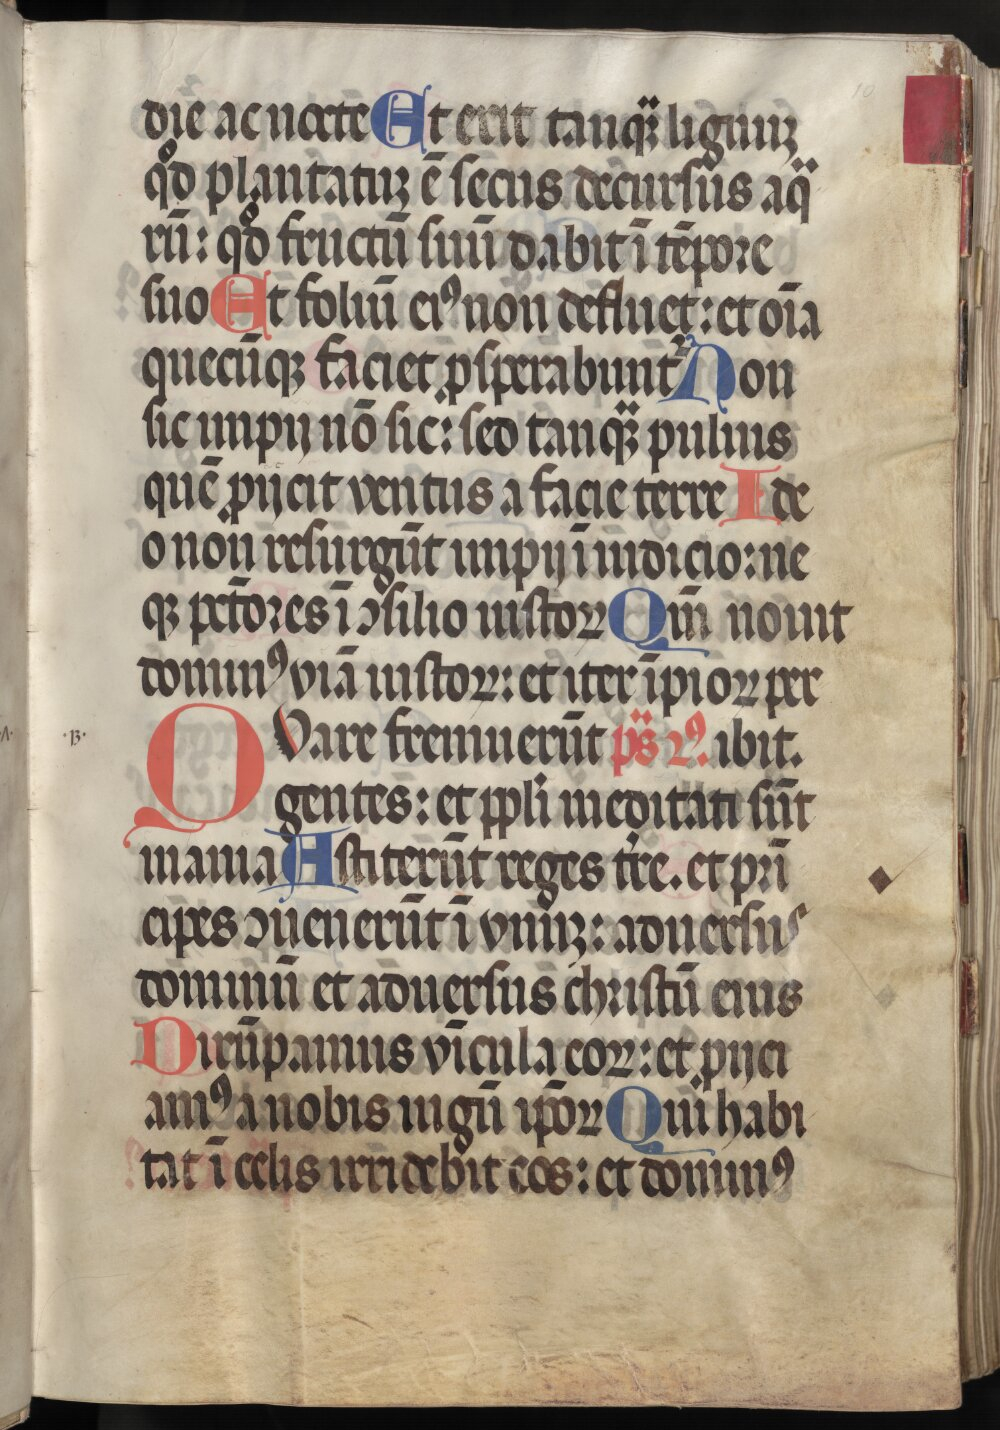 die ac nocte Et erit tanqȝ̈ lignuȝ
qd̊ plantatuȝ ē secus decursus aq̈
rū: qd̊ fructū suū dabit ī tēpore
suo Et foliū eiꝰ non defluet: et oīa
quecūqȝ faciet ꝓsperabunt᷑ Non
sic impij nō sic: sed tanqȝ̈ puluis
quē ꝓijcit ventus a facie terre Ide
o non resurgūt impij ī iudicio: ne
qȝ pctōres ī ↄsilio iustoꝝ Qm̄ nouit
dominꝰ viā iustoꝝ: et iter īpioꝝ per
QVare fremuerūt ps̈ ꝛꝰ. ibit.
·A· ·B·
gentes: et ppl̄i meditati sūt
inania Astiterūt reges tr̄e. et prī
cipes ↄuenerūt ī vnuȝ: aduersus
dominū et aduersus christū eius
Dirūpamus vīcula eoꝝ: et ꝓijci
amꝰ a nobis iugū ip̄oꝝ Qui habi
tat ī celis irridebit eos: et dominꝰ
10